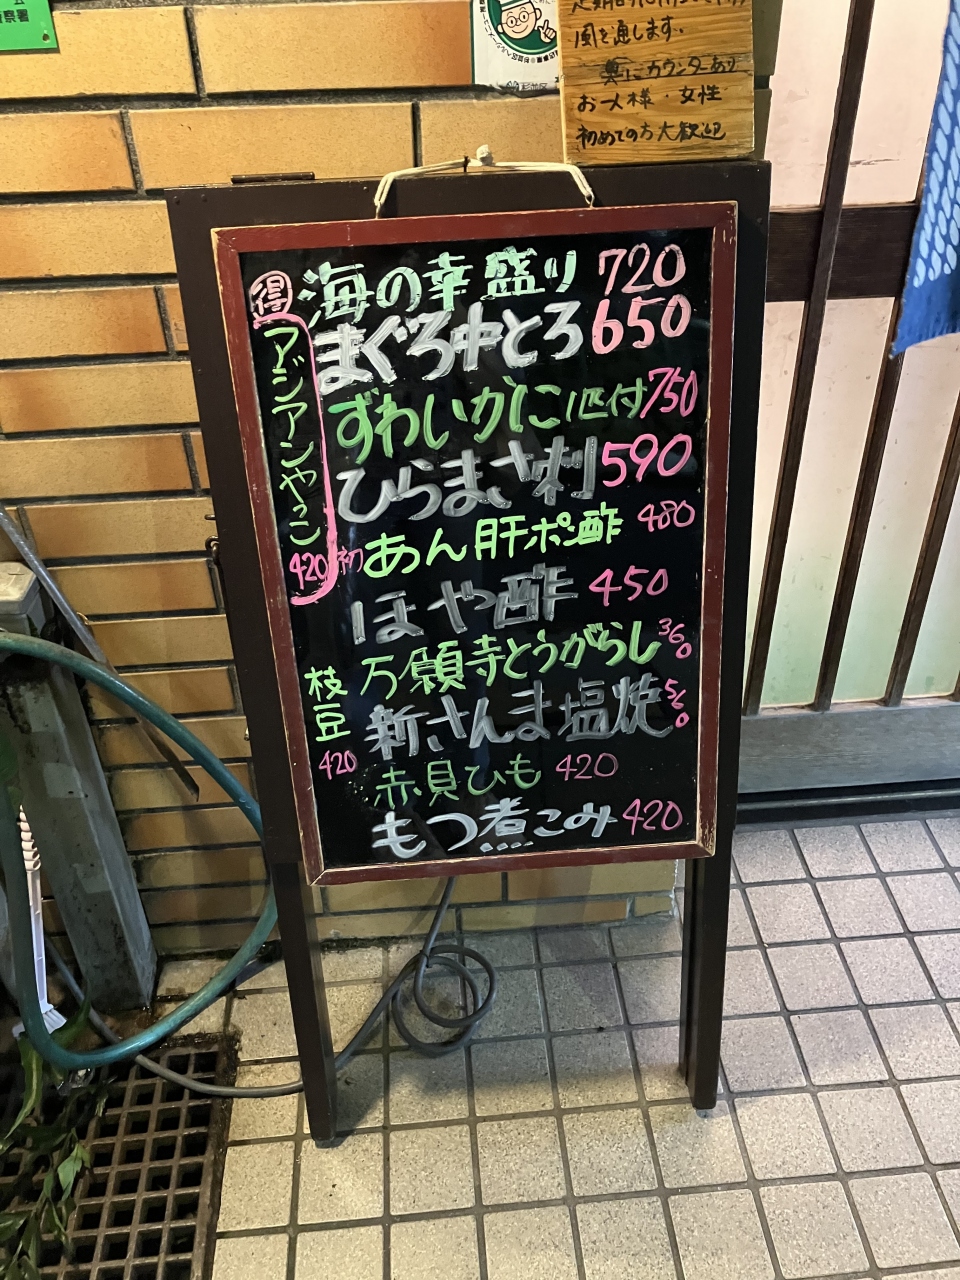 風を通します。
奥にカウンターあり
お一人様・女性
初めての方大歓迎
得 海の幸盛り 720
まぐろ中とろ 650
ずわいがに1匹付 750
ひらまさ刺 590
初 あん肝ポン酢 480
ほや酢 450
万願寺とうがらし 360
新さんま塩焼 560
赤貝ひも 420
もつ煮こみ 420
アジアンやっこ
420
枝豆
420